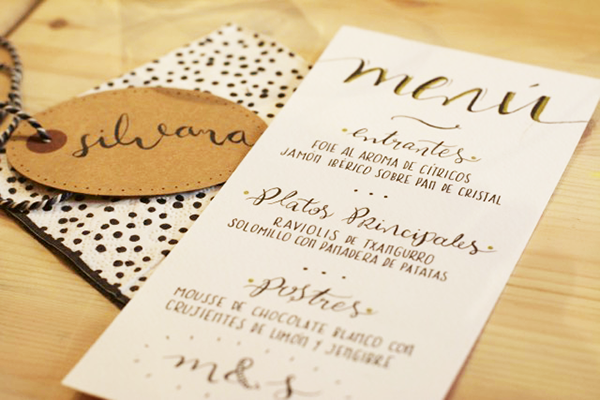 silvana
menú
entrantes
FOIE AL AROMA DE CÍTRICOS
JAMÓN IBÉRICO SOBRE PAN DE CRISTAL
Platos Principales
RAVIOLIS DE TXANGURRO
SOLOMILLO CON PANADERA DE PATATAS
Postres
MOUSSE DE CHOCOLATE BLANCO CON
CRUJIENTES DE LIMÓN Y JENGIBRE
m&s